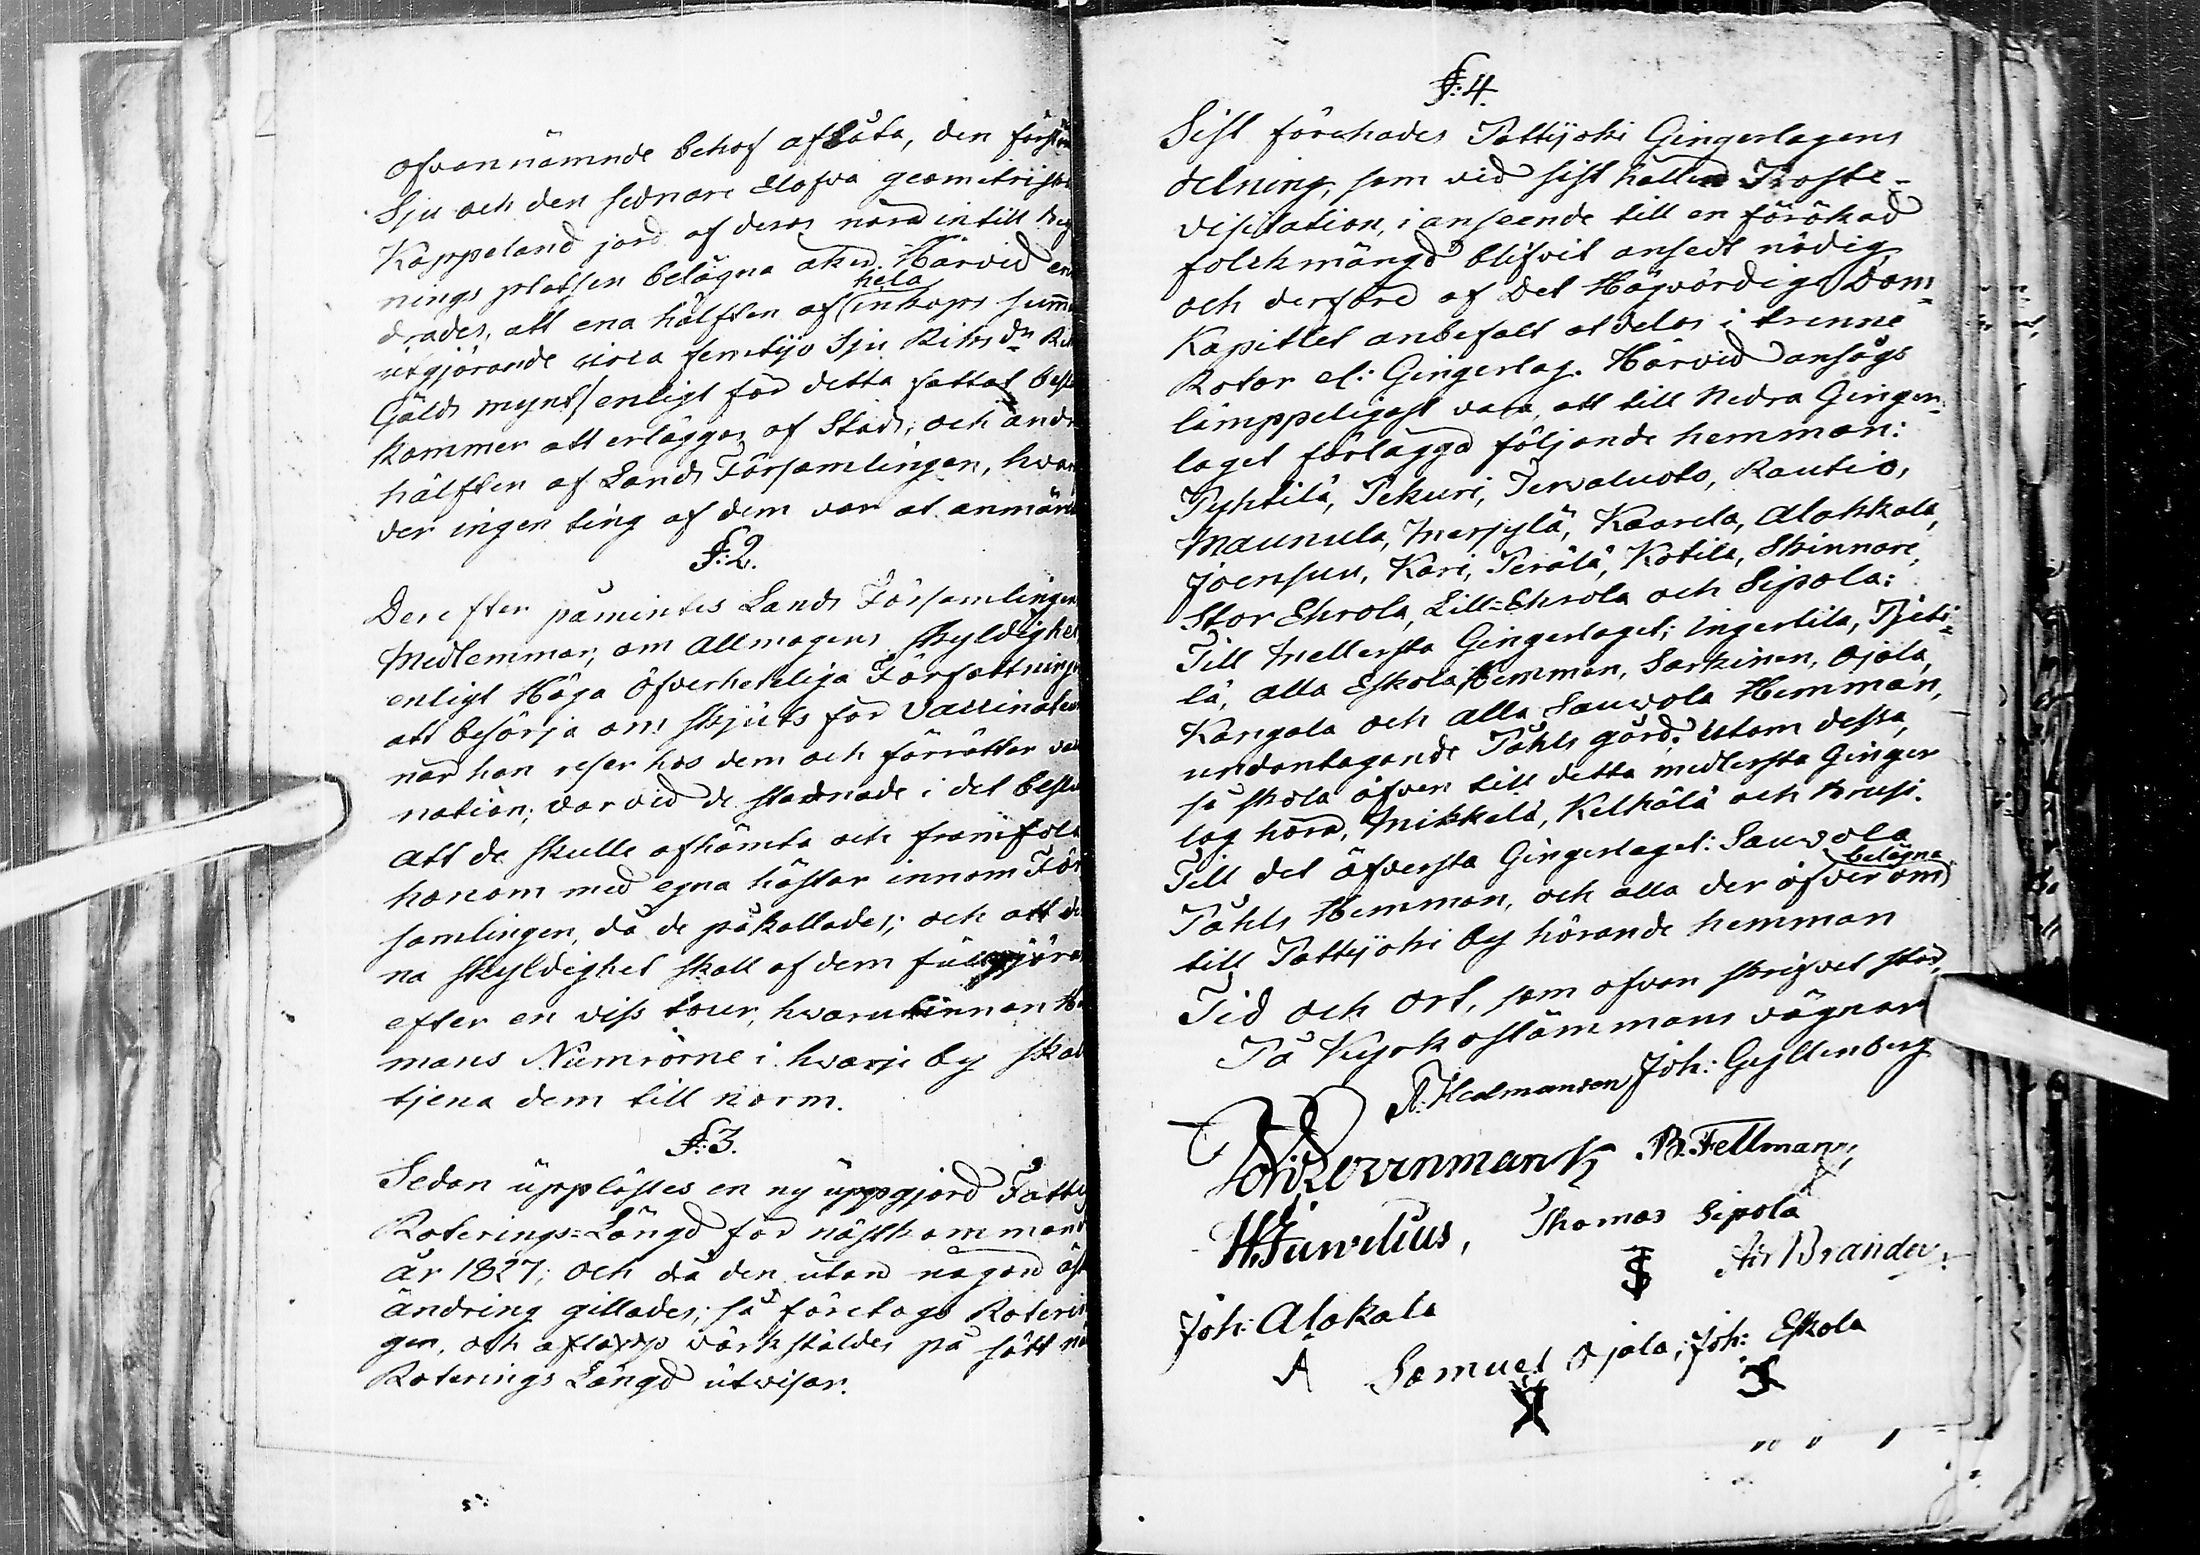 ofvannämnde behof aflåta, den förstnä
Sju och den sednare Elofva geometriska
Kappeland jord af deras nära intill beg
nings platsen belägna åker. Härvid en
drades, att ena hälften af hela inköps summ
utgjörande circa femtijo Sju Riks dr Rik
Gälds mynt, enligt för detta fattat beslu
kommer att erläggas af Stads, och andr
hälften af Lands Församlingen, hvar
ver ingen ting af dem var at anmärk
§: 2.
Derefter påmintes Lands Församlingens
Medlemmar, om Allmogens skyldighet
enligt Höga Öfverhetliga Författninga
att besörja om skjuts för Vaccinateur
när han reser hos dem och förrättar vac
nation; varvid de stadnade i det beslut
att de skulle afhämta och framfölja
honom med egna hästar innom För
samlingen, då de påkallades; och att den
na skyldighet skall af dem fullgjöras
efter en viss tour, hvarutinnan He
mans Numrorne i hvarje by skola
tjena dem till norm.
§: 3.
Sedan upplästes en ny uppgjord Fattig
Roterings-Längd för nästkommande
år 1827; och då den utan någon åst
ändring gillades; så företogs Roterin
gen, och aflopp värkstäldes på sätt
Roterings Längd utvisar.
§: 4.
Sist förehades Pattijoki Gingerlagens
delning, som vid sist hållen Proste-
visitation, i anseende till en förökad
folckmängd blifvit ansedt nödig,
och derföre af Det Högvördige Dom-
Kapitlet anbefalt at delas i trenne
Rotar el: Gingerlag. Härvid ansågs
lämppeligast vara, att till Nedra Ginger-
laget förlägga följande hemman:
Pyhtilä, Pekuri, Tervaluoto, Rautio,
Maunula, Merjylä, Kaarela, Alokkala,
Joensuu, Kari, Perälä, Kotila, Skinnare,
Stor Ehrola, Lill-Ehrola och Sipola:
Till Mellersta Gingerlaget; Ingertila, Pjeti-
lä, alla Eskola Hemman, Sarkinen, Ojala,
Kangala och alla Sauvola Hemman,
undantagande Påhls gård. Utom dessa,
så skola äfven till detta medlersta Ginger
lag höra, Mikkelä, Kelhälä och Krusi.
Till det öfversta Gingerlaget: Sauvola
Påhls Hemman, och alla der öfver om belägna
till Pattijoki by hörande hemman
Tid och Ort, som ofvan skrifvet står,
På Kyrkostämmans vägnar
A. Hedmansson Joh: Gyllenberg
B. Fellman,
H. Juvelius, Thomas Sipola
An Brander.
Joh: Alokala
A Samuel Ojala; Joh: Eskola